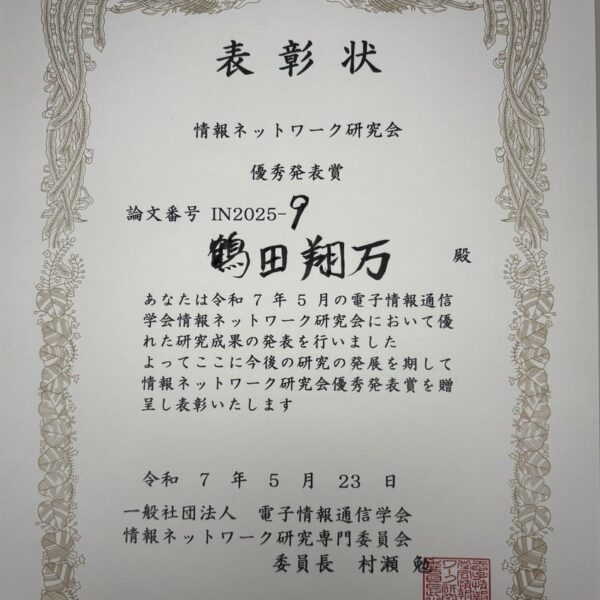 表彰状
情報ネットワーク研究会
優秀発表賞
論文番号 IN2025-9
鶴田翔万 殿
あなたは令和 7 年 5 月の電子情報通信
学会情報ネットワーク研究会において優
れた研究成果の発表を行いました
よってここに今後の研究の発展を期して
情報ネットワーク研究会優秀発表賞を贈
呈し表彰いたします
令和 7 年 5 月 23 日
一般社団法人 電子情報通信学会
情報ネットワーク研究専門委員会
委員長 村瀬 勉